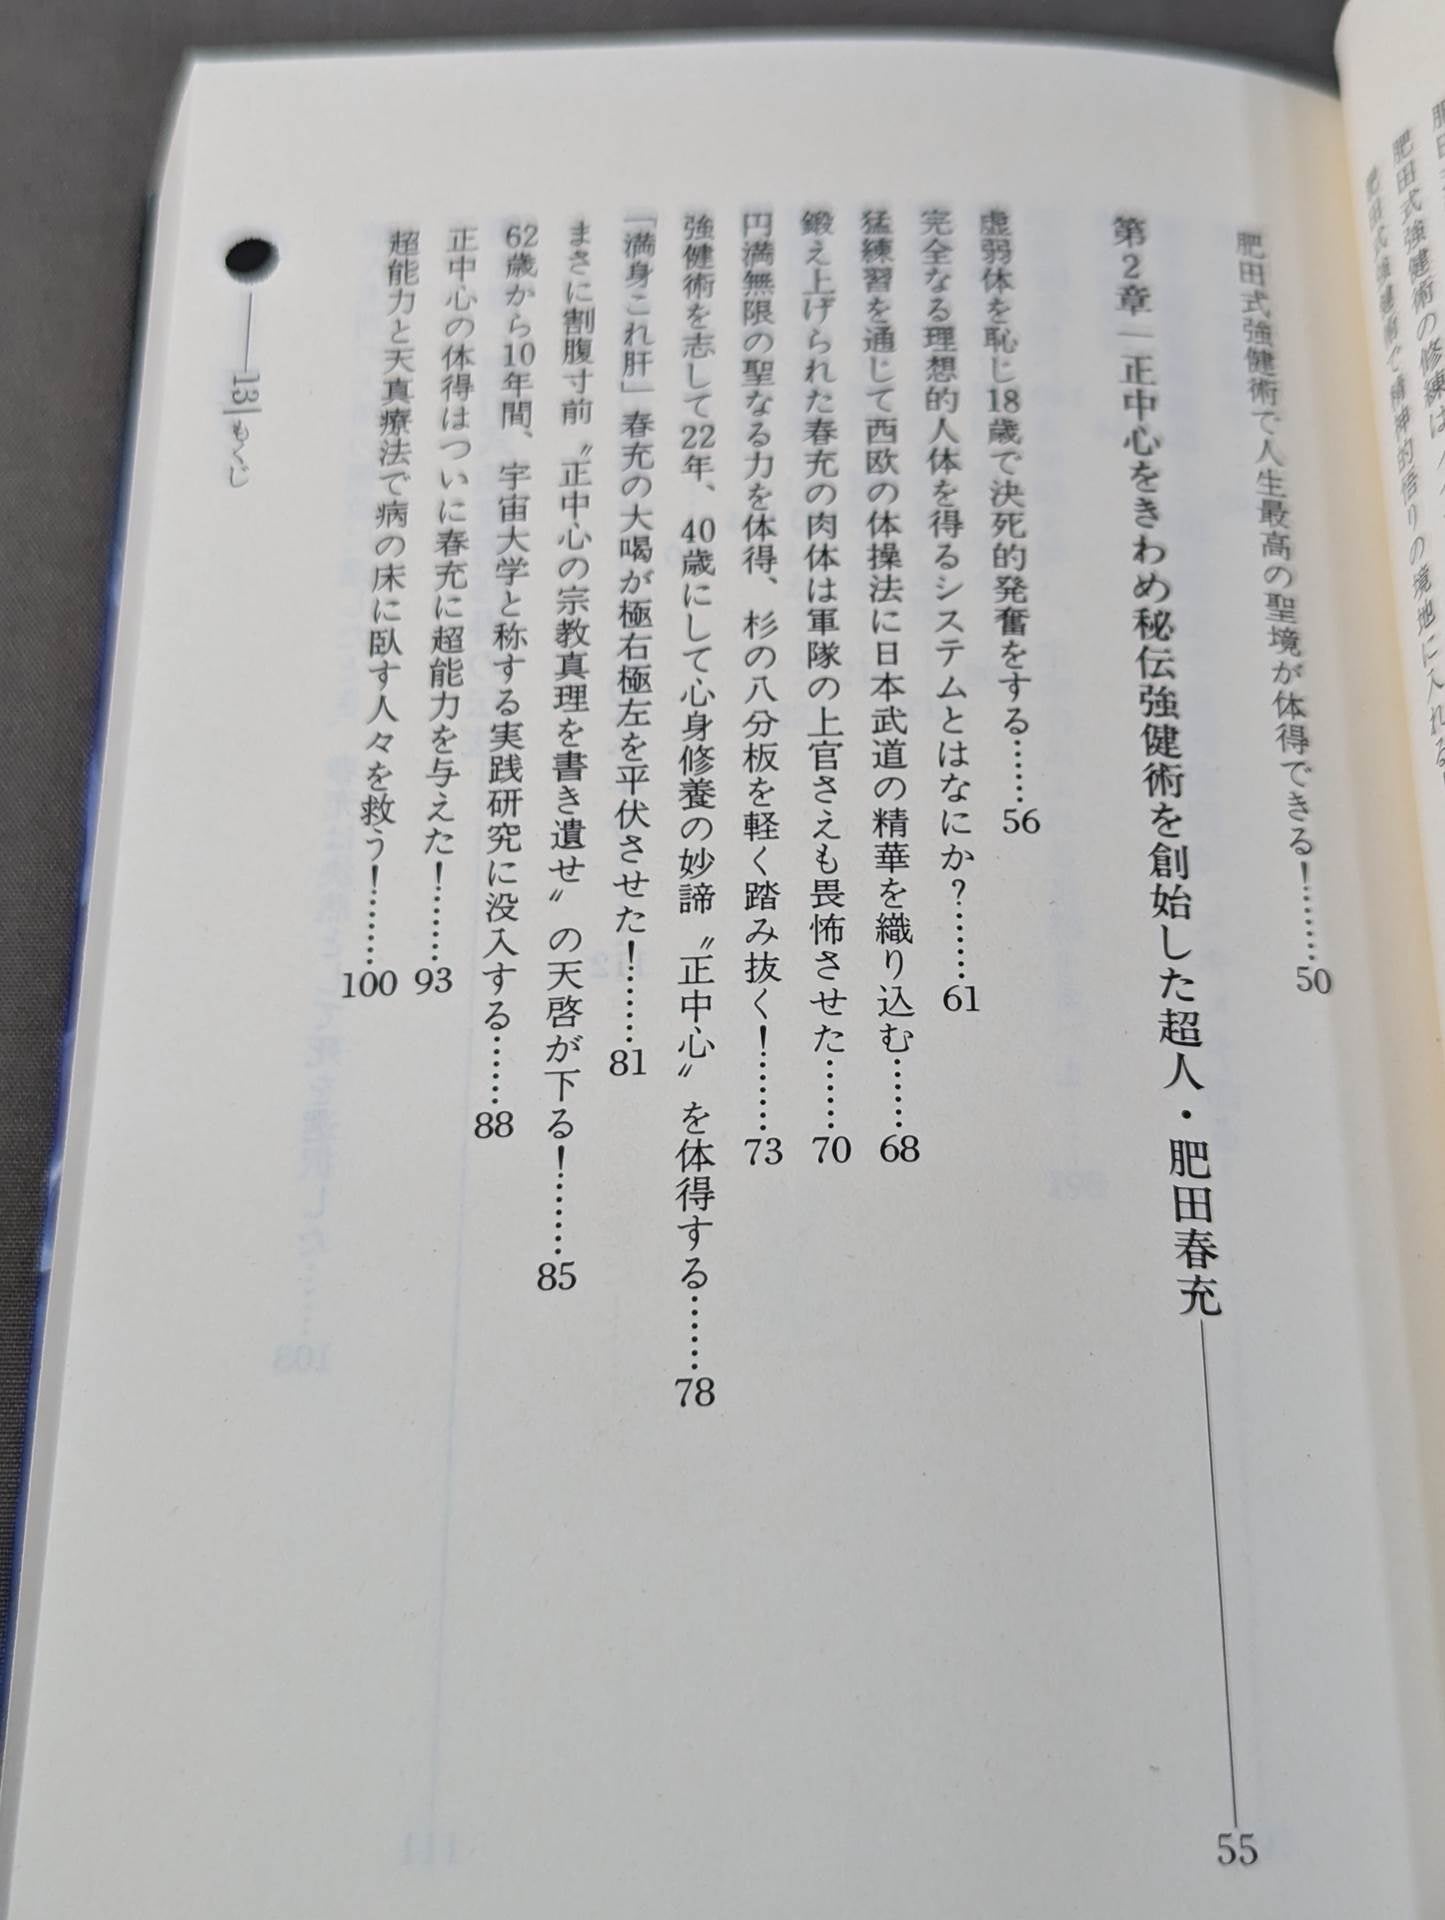 肥田式強健術の修練は
肥田式強健術で精神的悟りの境地に入れる
肥田式強健術で人生最高の聖境が体得できる！……50
第2章―正中心をきわめ秘伝強健術を創始した超人・肥田春充―55
虚弱体を恥じ18歳で決死的発奮をする……56
完全なる理想的人体を得るシステムとはなにか？……61
猛練習を通じて西欧の体操法に日本武道の精華を織り込む……68
鍛え上げられた春充の肉体は軍隊の上官さえも畏怖させた……70
円満無限の聖なる力を体得、杉の八分板を軽く踏み抜く！……73
強健術を志して22年、40歳にして心身修養の妙諦〝正中心〟を体得する……78
「満身これ肝」春充の大喝が極右極左を平伏させた！……81
まさに割腹寸前〝正中心の宗教真理を書き遺せ〟の天啓が下る！……85
62歳から10年間、宇宙大学と称する実践研究に没入する……88
正中心の体得はついに春充に超能力を与えた！……93
超能力と天真療法で病の床に臥す人々を救う！……100
13 もくじ